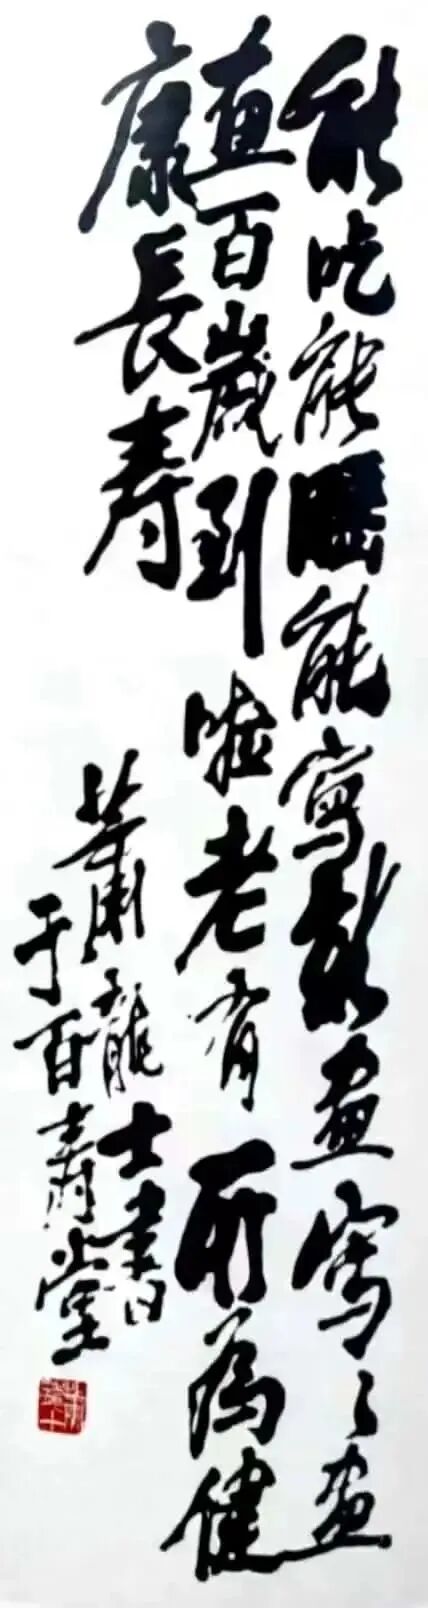 能吃能睡能寫能畫寫〻畫
畫百歲到啦老有所為健
康長壽
蕭龍士書
于百壽堂